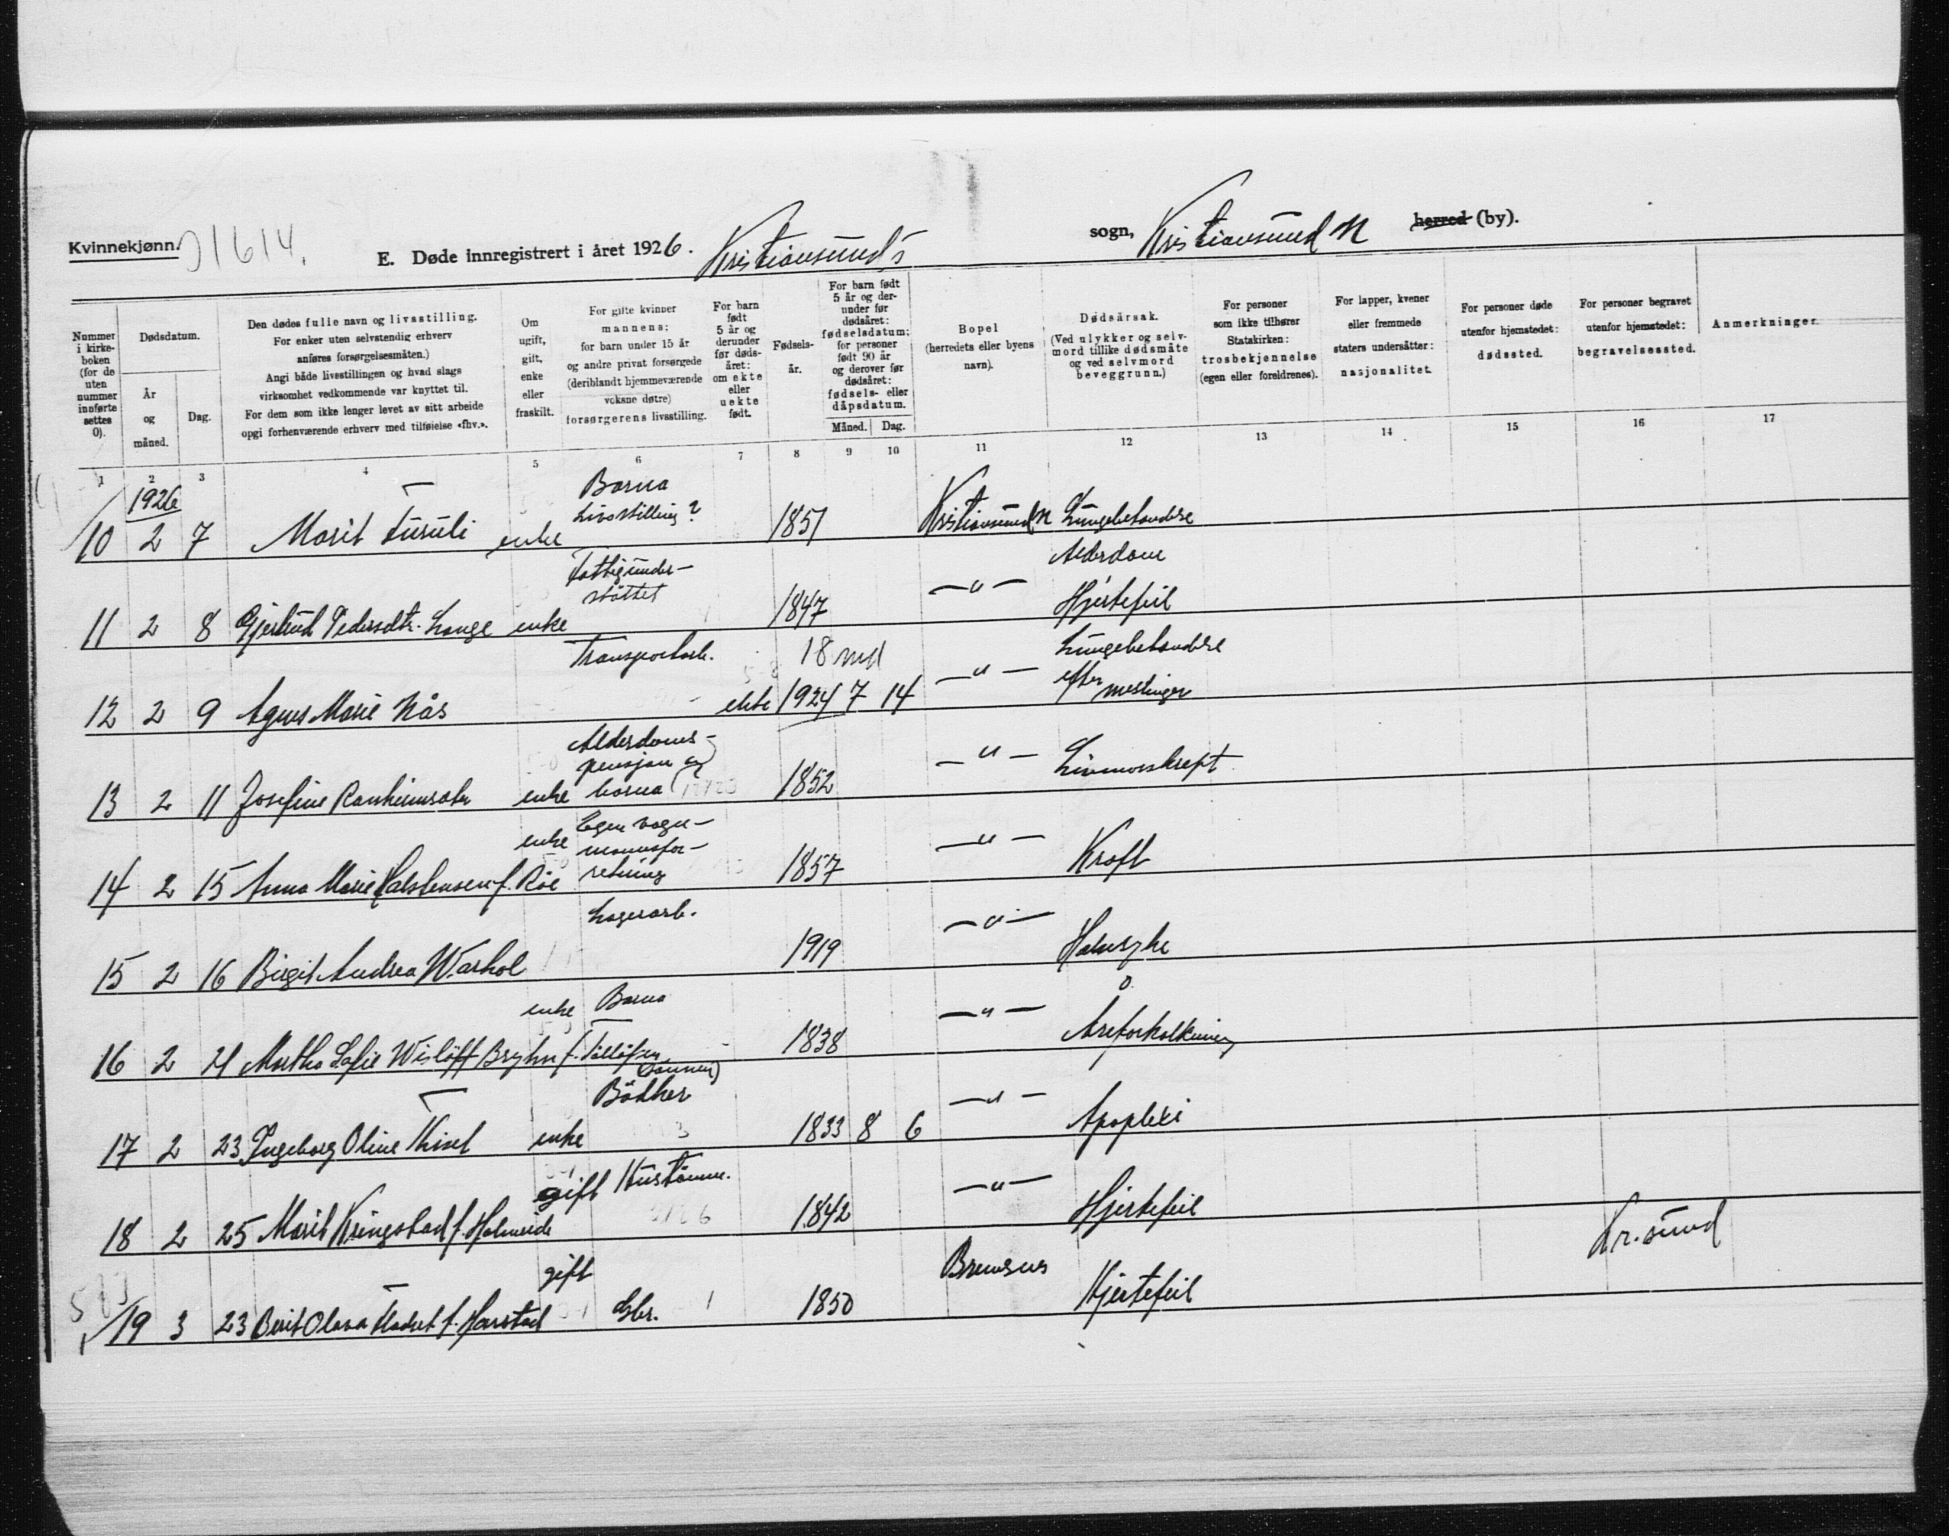 Kvinnekjønn. 1614.
E. Døde innregistrert i året 1926. Kristiansunds sogn, Kristiansund N herred (by).
Nummer i kirke-boken (for de uten nummer innførte settes 0).
Dødsdatum.
År og måned.
Dag.
Den dødes fulle navn og livsstilling.
For enker uten selvstendig erhverv
anføres forsørgelsesmåten.)
Angi både livsstillingen og hvad slags
virksomhet vedkommende var knyttet til.
For dem som ikke lenger levet av sitt arbeide
opgi forhenværende erhverv med tilføielse «fhv.».
Om ugift, gift, enke eller fraskilt.
For gifte kvinner
mannens:
for barn under 15 år
og andre privat forsørgede
(deriblandt hjemmeværende
voksne døtre)
forsørgerens livsstilling.
For barn født 5 år og derunder før døds-året: om ekte eller uekte født.
Fødsels-år.
For barn født 5 år og der-under før dødsåret: fødselsdatum; for personer født 90 år og derover før dødsåret: fødsels- eller dåpsdatum.
Måned. Dag.
Bopel
(herredets eller byens
navn).
Dødsårsak.
(Ved ulykker og selv-
mord tillike dødsmåte
og ved selvmord
beveggrunn.)
For personer
som ikke tilhører
Statskirken:
trosbekjennelse
(egen eller foreldrenes).
For lapper, kvener
eller fremmede
staters undersåtter:
nasjonalitet.
For personer døde
utenfor hjemstedet:
dødssted.
For personer begravet
utenfor hjemstedet:
begravelsessted.
Anmerkninger.
1 2 3 4 5 6 7 8 9 10 11 12 13 14 15 16 17
1926
10 2 7 Marit Tusuli enke Barna Livsstilling? 1851 Kristiansund N Lungebetendelse
11 2 8 Gjertrud Pedersdtr. Lange enke Fattigunder-støttet 1847 —"— Alderdom Hjertefeil
12 2 9 Agnes Marie Nås Transportarb. ekte 18 md 1924 7 14 —"— Lungebetendelse efter meslinger
13 2 11 Josefine Ranheimsæter enke Alderdoms-pensjon og barna 1852 —"— Livmorskreft
14 2 15 Anna Marie Halstensen f. Røe enke Egen vogn-mannsfor-retning 1857 —"— Kreft
15 2 16 Birgit Andrea Warhol Lagerarb. 1919 —"— Halssyke
16 2 21 Martha Sofie Wisløff Bryhn f. Tølløfsen enke Barna 1838 —"— Åreforkalkning
17 2 23 Ingeborg Oline enke (sønnen) Bødker 1833 8 6 —"— Apoplexi
18 2 25 Marit Kringstad f. Holmeide gift Hustømm. 1842 —"— Hjertefeil
19 3 23 Berit Olava f. Harstad gift Gbr. 1850 Bremsnes Hjertefeil Kr.sund